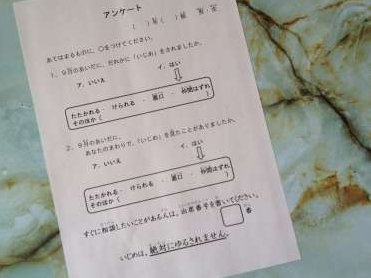 アンケート
年 組 ( ) 月 ( )
あてはまるものに、○をつけてください。
1、9月のあいだに、だれかに「いじめ」をされましたか。
ア、いいえ イ、はい
たたかれる・ けられる ・ 悪口 ・ 仲間はずれ
そのほか ( )
2、9月のあいだに、
あなたのまわりで、「いじめ」を見たことがありましたか。
ア、いいえ イ、はい
たたかれる・ けられる ・ 悪口 ・ 仲間はずれ
そのほか ( )
すぐに相談したいことがある人は、出席番号を書いてください。
番
いじめは、絶対にゆるされません。